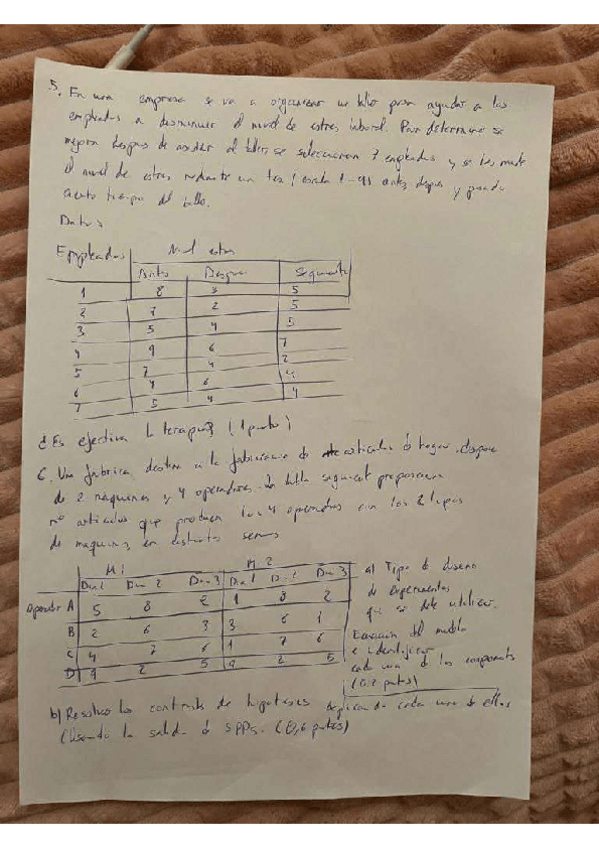 5. En una empresa se va a organizar un taller para ayudar a los
empleados a disminuir el nivel de estres laboral. Para determinar se
mejora despues de asistir al taller se seleccionaron 7 empleados y se les mide
el nivel de estres mediante un test (escala 1-) antes despues y pasado
cierto tiempo del taller.
Datos
Empleados Nivel estres
Antes Despues Seguimiento
1 8 3 5
2 7 2 5
3 5 4 5
4 9 6 7
5 7 4 2
6 4 6 4
7 5 4 4
¿Es efectiva la terapia? (1 punto)
6. Una fabrica destina a la fabricacion de articulos de hogar dispone
de 2 maquinas y 4 operadores. La tabla siguiente proporciona
nº articulos que producen los 4 operadores con los 2 tipos
de maquinas en distintos
M1 M2
Dia 1 Dia 2 Dia 3 Dia 1 Dia 2 Dia 3
Operador A 5 8 2 1 8 2
B 2 6 3 3 6 1
C 4 7 6 1 7 6
D 9 2 5 9 2 5
a) Tipo de diseño
de experimentos
que se debe utilizar.
Ecuacion del modelo
e identificar
cada uno de los componentes
(0,2 puntos)
b) Resolver los contrastes de hipotesis explicando cada uno de ellos
(Usando la salida de SPSS. (0,6 puntos)